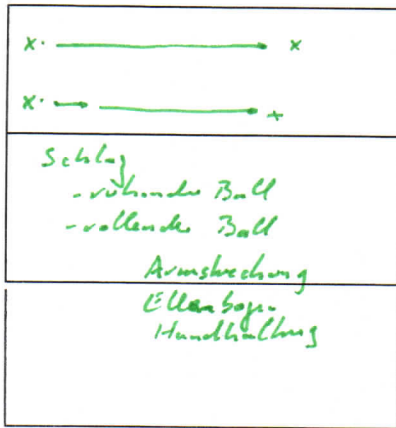 x x
x x
Schlag
- ruhender Ball
- rollender Ball
Armstreckung
Ellenbogen
Handhaltung